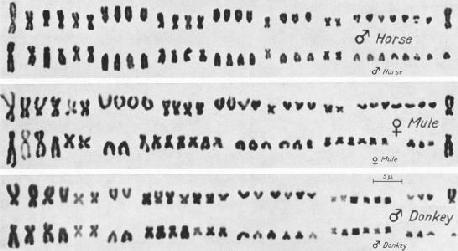 ♂ Horse
♂ Horse
♀ Mule
♀ Mule
5μ
♂ Donkey
♂ Donkey